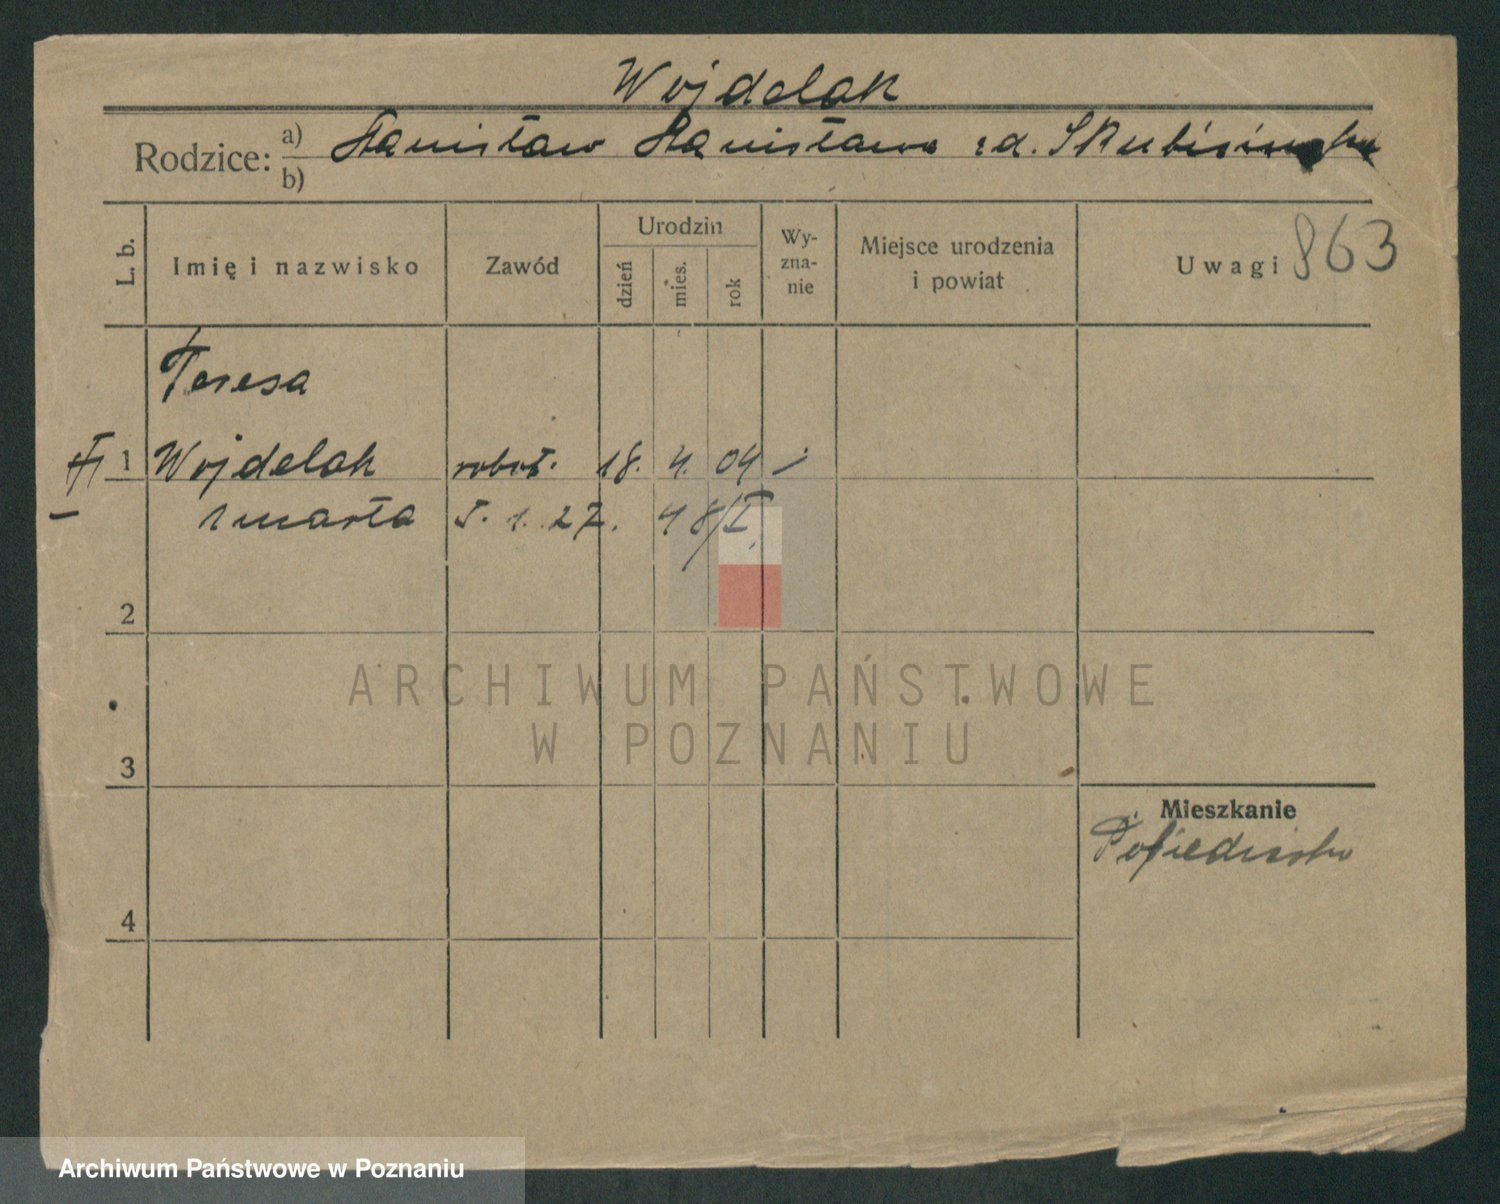 Wojdelak
Rodzice: a) Stanisław Stanisława
b)
L. b.
Imię i nazwisko
Zawód
Urodzin
dzień
mies.
rok
Wy-
zna-
nie
Miejsce urodzenia
i powiat
Uwagi 863
Teresa
1 Wojdelak robot. 18. 4. 04
zmarła 5. 1. 27. 48/I
2
3
4
Mieszkanie
ARCHIWUM PAŃSTWOWE
W POZNANIU
Archiwum Państwowe w Poznaniu